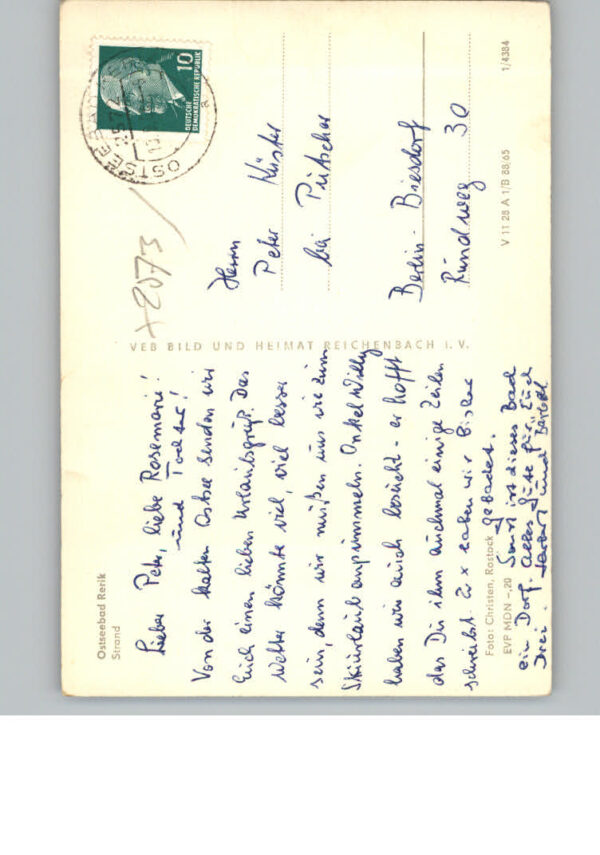 Ostseebad Rerik
Strand
Lieber Peter, liebe Rosemarie!
und Tochter!
Von der kalten Ostsee senden wir
Euch einen lieben Urlaubsgruß. Das
Wetter könnte viel, viel besser
sein, denn wir müßen uns wie zum
Skiurlaub anpummeln. Onkel Willy
haben wir auch besucht - er hofft
das Du ihm auch mal einige Zeilen
schreibst. 2 x haben wir bisher
gebadet.
Sonst ist dieses Bad
ein Dorf. Alles Gute für Euch
Drei. und Bärbel
Foto: Christen, Rostock
EVP MDN -,20
VEB BILD UND HEIMAT REICHENBACH I. V.
V 11 28 A 1/B 88/65
1/4384
+2073
Herrn
Peter Küster
bei
Berlin-Biesdorf
Rundweg 30
10
DEUTSCHE
DEMOKRATISCHE REPUBLIK
OSTSEEBAD